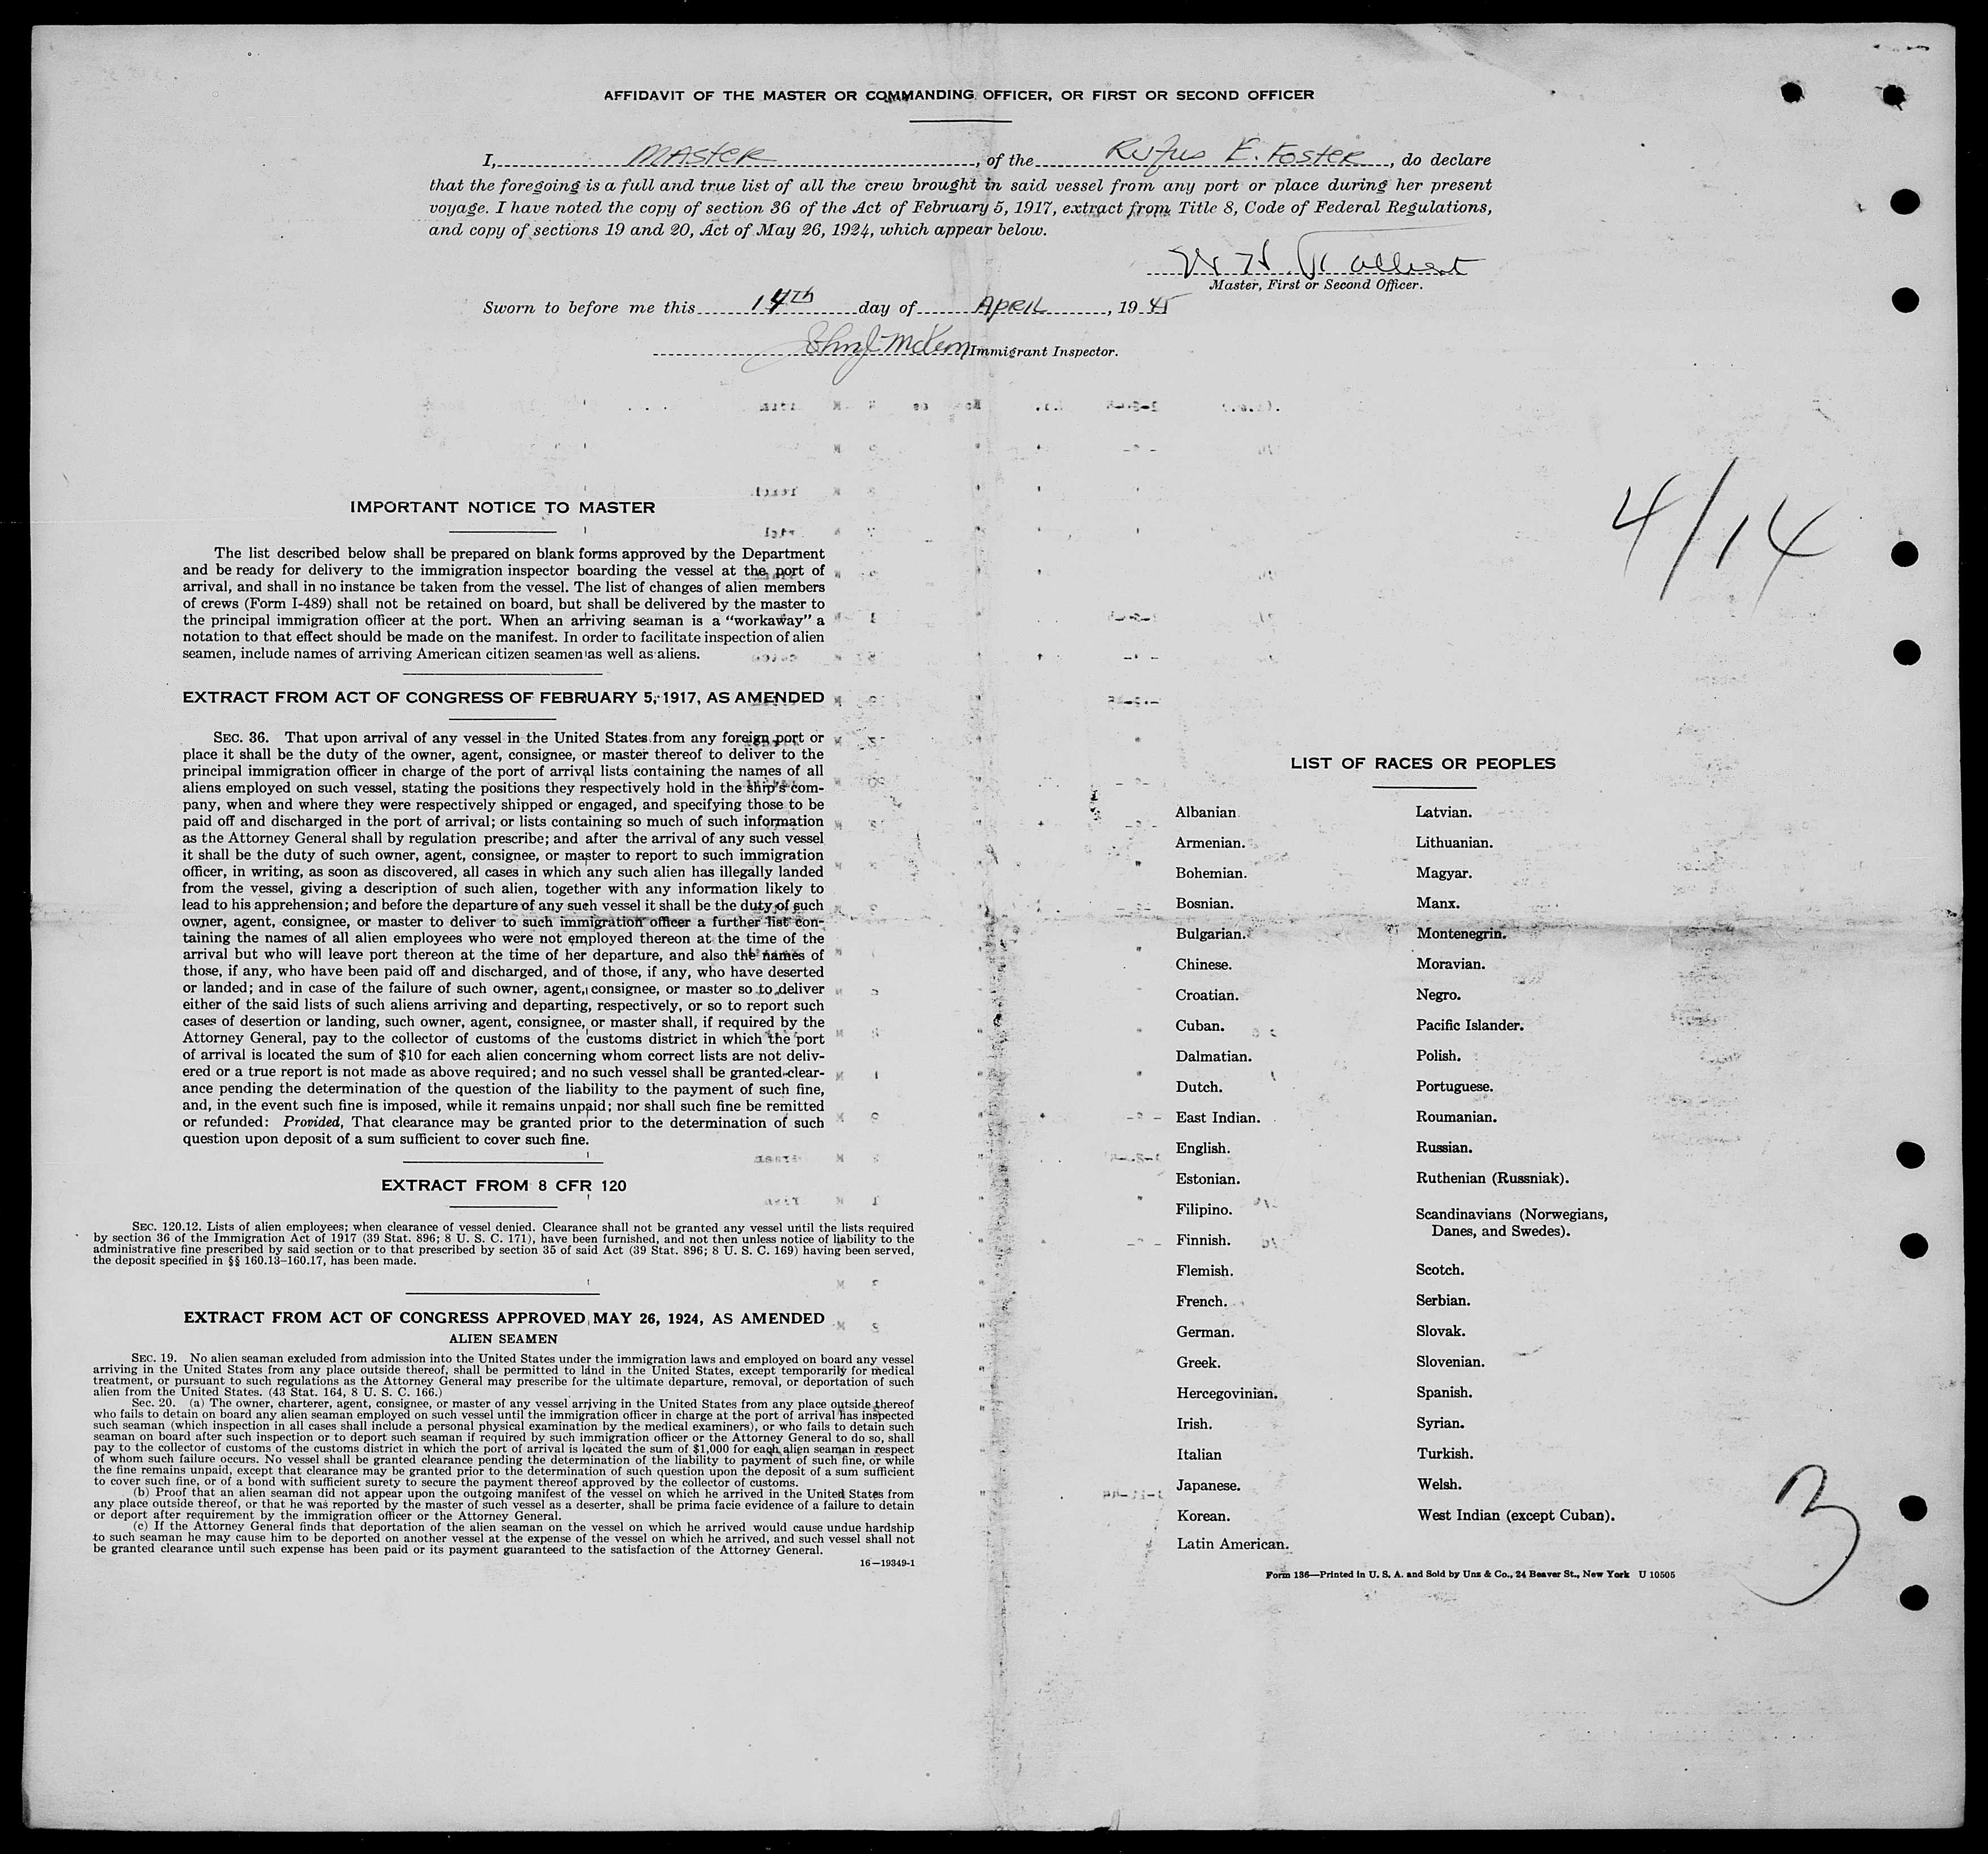 AFFIDAVIT OF THE MASTER OR COMMANDING OFFICER, OR FIRST OR SECOND OFFICER
I, MASTER, of the Rufus E. Foster, do declare
that the foregoing is a full and true list of all the crew brought in said vessel from any port or place during her present
voyage. I have noted the copy of section 36 of the Act of February 5, 1917, extract from Title 8, Code of Federal Regulations,
and copy of sections 19 and 20, Act of May 26, 1924, which appear below.
Master, First or Second Officer.
Sworn to before me this 14th day of APRIL, 1945
John J. Immigrant Inspector.
4/14
IMPORTANT NOTICE TO MASTER
The list described below shall be prepared on blank forms approved by the Department
and be ready for delivery to the immigration inspector boarding the vessel at the port of
arrival, and shall in no instance be taken from the vessel. The list of changes of alien members
of crews (Form I-489) shall not be retained on board, but shall be delivered by the master to
the principal immigration officer at the port. When an arriving seaman is a "workaway" a
notation to that effect should be made on the manifest. In order to facilitate inspection of alien
seamen, include names of arriving American citizen seamen as well as aliens.
EXTRACT FROM ACT OF CONGRESS OF FEBRUARY 5, 1917, AS AMENDED
SEC. 36. That upon arrival of any vessel in the United States from any foreign port or
place it shall be the duty of the owner, agent, consignee, or master thereof to deliver to the
principal immigration officer in charge of the port of arrival lists containing the names of all
aliens employed on such vessel, stating the positions they respectively hold in the ship's com-
pany, when and where they were respectively shipped or engaged, and specifying those to be
paid off and discharged in the port of arrival; or lists containing so much of such information
as the Attorney General shall by regulation prescribe; and after the arrival of any such vessel
it shall be the duty of such owner, agent, consignee, or master to report to such immigration
officer, in writing, as soon as discovered, all cases in which any such alien has illegally landed
from the vessel, giving a description of such alien, together with any information likely to
lead to his apprehension; and before the departure of any such vessel it shall be the duty of such
owner, agent, consignee, or master to deliver to such immigration officer a further list con-
taining the names of all alien employees who were not employed thereon at the time of the
arrival but who will leave port thereon at the time of her departure, and also the names of
those, if any, who have been paid off and discharged, and of those, if any, who have deserted
or landed; and in case of the failure of such owner, agent, consignee, or master so to deliver
either of the said lists of such aliens arriving and departing, respectively, or so to report such
cases of desertion or landing, such owner, agent, consignee, or master shall, if required by the
Attorney General, pay to the collector of customs of the customs district in which the port
of arrival is located the sum of $10 for each alien concerning whom correct lists are not deliv-
ered or a true report is not made as above required; and no such vessel shall be granted clear-
ance pending the determination of the question of the liability to the payment of such fine,
and, in the event such fine is imposed, while it remains unpaid; nor shall such fine be remitted
or refunded: Provided, That clearance may be granted prior to the determination of such
question upon deposit of a sum sufficient to cover such fine.
EXTRACT FROM 8 CFR 120
SEC. 120.12. Lists of alien employees; when clearance of vessel denied. Clearance shall not be granted any vessel until the lists required
by section 36 of the Immigration Act of 1917 (39 Stat. 896; 8 U. S. C. 171), have been furnished, and not then unless notice of liability to the
administrative fine prescribed by said section or to that prescribed by section 35 of said Act (39 Stat. 896; 8 U. S. C. 169) having been served,
the deposit specified in §§ 160.13–160.17, has been made.
EXTRACT FROM ACT OF CONGRESS APPROVED MAY 26, 1924, AS AMENDED
ALIEN SEAMEN
SEC. 19. No alien seaman excluded from admission into the United States under the immigration laws and employed on board any vessel
arriving in the United States from any place outside thereof, shall be permitted to land in the United States, except temporarily for medical
treatment, or pursuant to such regulations as the Attorney General may prescribe for the ultimate departure, removal, or deportation of such
alien from the United States. (43 Stat. 164, 8 U. S. C. 166.)
Sec. 20. (a) The owner, charterer, agent, consignee, or master of any vessel arriving in the United States from any place outside thereof
who fails to detain on board any alien seaman employed on such vessel until the immigration officer in charge at the port of arrival has inspected
such seaman (which inspection in all cases shall include a personal physical examination by the medical examiners), or who fails to detain such
seaman on board after such inspection or to deport such seaman if required by such immigration officer or the Attorney General to do so, shall
pay to the collector of customs of the customs district in which the port of arrival is located the sum of $1,000 for each alien seaman in respect
of whom such failure occurs. No vessel shall be granted clearance pending the determination of the liability to payment of such fine, or while
the fine remains unpaid, except that clearance may be granted prior to the determination of such question upon the deposit of a sum sufficient
to cover such fine, or of a bond with sufficient surety to secure the payment thereof approved by the collector of customs.
(b) Proof that an alien seaman did not appear upon the outgoing manifest of the vessel on which he arrived in the United States from
any place outside thereof, or that he was reported by the master of such vessel as a deserter, shall be prima facie evidence of a failure to detain
or deport after requirement by the immigration officer or the Attorney General.
(c) If the Attorney General finds that deportation of the alien seaman on the vessel on which he arrived would cause undue hardship
to such seaman he may cause him to be deported on another vessel at the expense of the vessel on which he arrived, and such vessel shall not
be granted clearance until such expense has been paid or its payment guaranteed to the satisfaction of the Attorney General.
16—19349-1
LIST OF RACES OR PEOPLES
Albanian
Armenian.
Bohemian.
Bosnian.
Bulgarian.
Chinese.
Croatian.
Cuban.
Dalmatian.
Dutch.
East Indian.
English.
Estonian.
Filipino.
Finnish.
Flemish.
French.
German.
Greek.
Hercegovinian.
Irish.
Italian
Japanese.
Korean.
Latin American.
Latvian.
Lithuanian.
Magyar.
Manx.
Montenegrin.
Moravian.
Negro.
Pacific Islander.
Polish.
Portuguese.
Roumanian.
Russian.
Ruthenian (Russniak).
Scandinavians (Norwegians,
Danes, and Swedes).
Scotch.
Serbian.
Slovak.
Slovenian.
Spanish.
Syrian.
Turkish.
Welsh.
West Indian (except Cuban).
3
Form 136—Printed in U. S. A. and Sold by Unz & Co., 24 Beaver St., New York U 10505